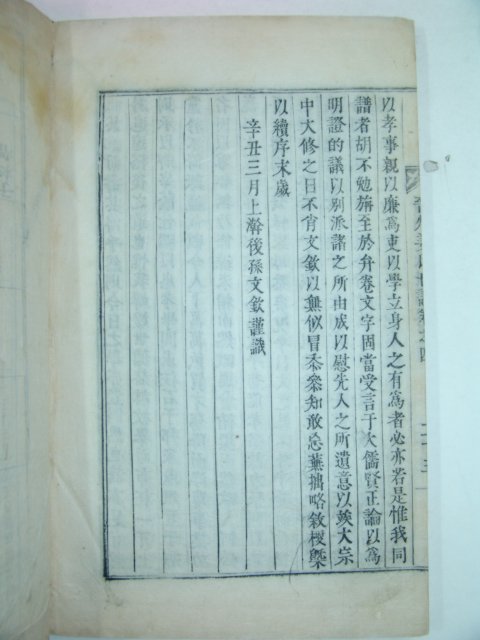 以孝事親以廉爲吏以學立身人之有爲者必亦若是惟我同
譜者胡不勉旃至於弁卷文字固當受言于大儒賢正論以爲
明證的議以別派諸之所由成以慰先人之所遺意以竢大宗
中大修之日不肖文欽以無似冒忝叅知敢忘蕪拙略敘梗槩
以續序末歲
辛丑三月上澣後孫文欽謹識